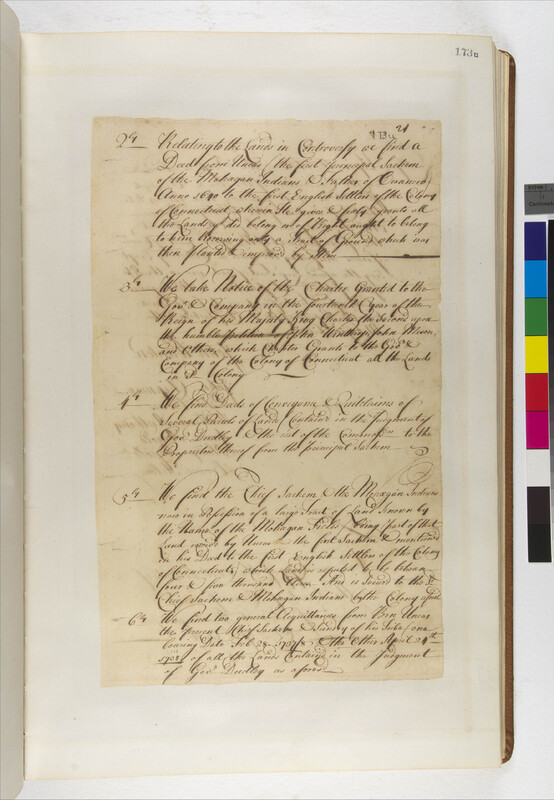 173a
21
2ly Relating to the Lands in Controversy we find a
Deed from Uncas the first principal Sachem
of the Mohegan Indians & Father of Owaneco
Anno 1640 to the first English Settlers of the Colony
of Connecticut wherein He gives & freely grants all
the Lands that did belong or of Right ought to belong
to him Reserving only a Tract of Ground which was
then planted & improved by Him
3ly We take Notice of the Charter Granted to the
Govr & Company in the fourteenth Year of the
Reign of his Majesty King Charles the Second upon
the humble petition of John Winthrop John Mason
and Others which Charter Grants to the Govr &
Company of the Colony of Connecticut all the Lands
in sd Colony
4ly We find Deeds of Conveyance & Quitclaims of
Several Parcels of Land Contain'd in the Judgment of
Govr Dudley & the rest of the Commrs to the
Proprietors thereof from the principal Sachem
5ly We find the Chief Sachem & the Moheagan Indians
now in Possession of a large Tract of Land known by
the Name of the Mohegan Fields being Part of that
Land owned by Uncas the first Sachem & mentioned
in his Deed to the first English Settlers of the Colony
of Connecticut which Land is reputed to be between
four & five thousand Acres And is Secured to the sd
Chief Sachem & Mohegan Indians by the Colony afsd
6ly We find two general Acquittances from Ben Uncas
the present Chief Sachem & Sundry of his Tribe one
bearing Date Feb 28 1737/8 & the Other April 24th
1738 of all the Lands Contain'd in the Judgment
of Govr Dudley as aforesd